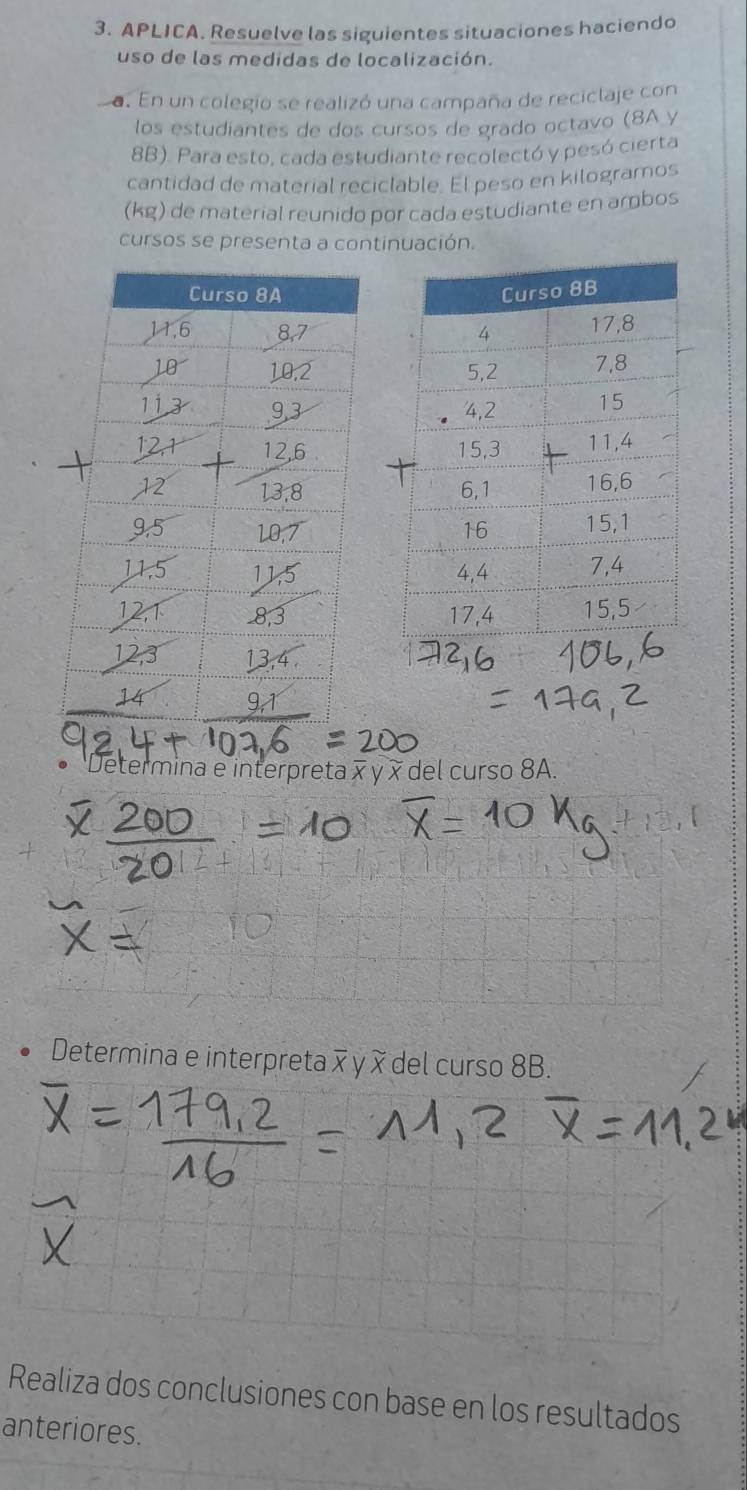 3. APLICA. Resuelve las siguientes situaciones haciendo
uso de las medidas de localización.
a. En un colegio se realizó una campaña de reciclaje con
los estudiantes de dos cursos de grado octavo (8A y
8B). Para esto, cada estudiante recolectó y pesó cierta
cantidad de material reciclable. El peso en kilogramos
(kg) de material reunido por cada estudiante en ambos
cursos se presenta a continuación.
Curso 8A
11,6 8,7
10 10,2
11,3 9,3
12,1 12,6
+ +
12 13,8
9,5 10,7
11,5 11,5
12,1 8,3
12,3 13,4
14 9,1
92,4 + 107,6 = 200
Curso 8B
4 17,8
5,2 7,8
4,2 15
15,3 11,4
+ +
6,1 16,6
16 15,1
4,4 7,4
17,4 15,5
72,6 + 106,6
= 179,2
• Determina e interpreta x̄ y x̃ del curso 8A.
x̄ 200/20 = 10 x̄ = 10 Kg
x̃ = 10
• Determina e interpreta x̄ y x̃ del curso 8B.
x̄ = 179,2/16 = 11,2 x̄ = 11,2
x̃
Realiza dos conclusiones con base en los resultados
anteriores.